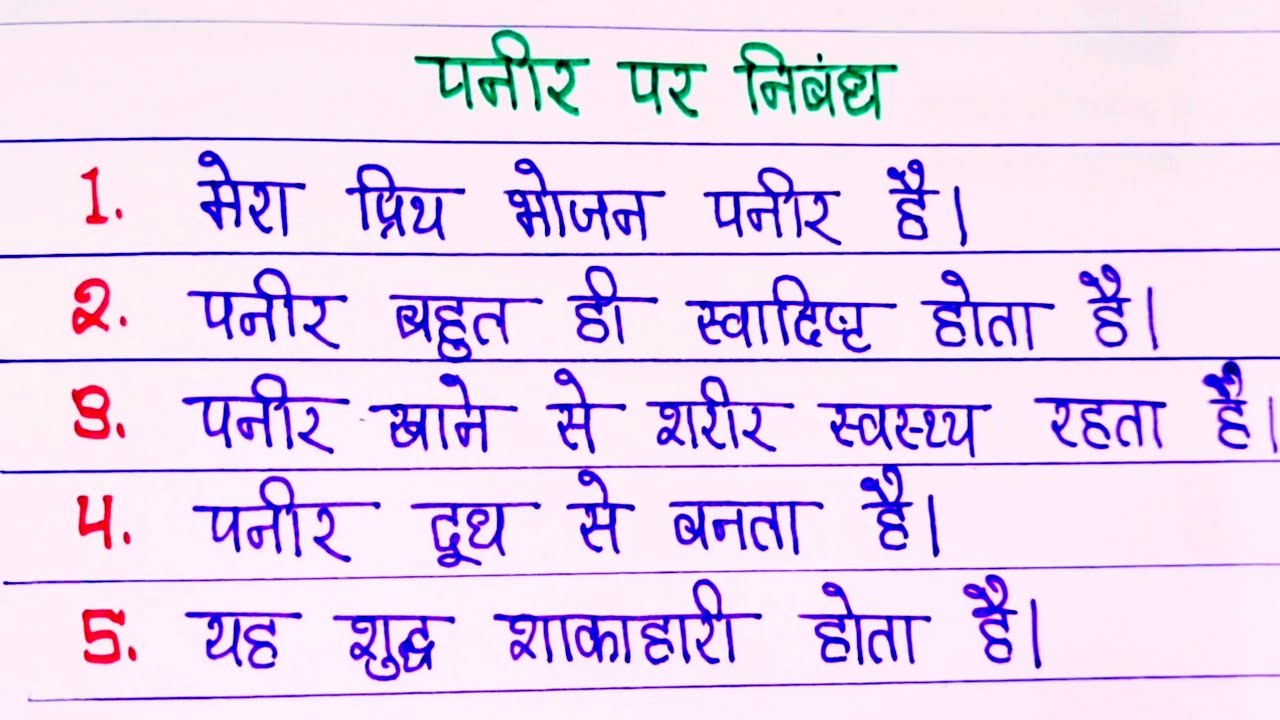 पनीर पर निबंध
1. मेरा प्रिय भोजन पनीर है।
2. पनीर बहुत ही स्वादिष्ट होता है।
3. पनीर खाने से शरीर स्वस्थ्य रहता है।
4. पनीर दूध से बनता है।
5. यह शुद्ध शाकाहारी होता है।